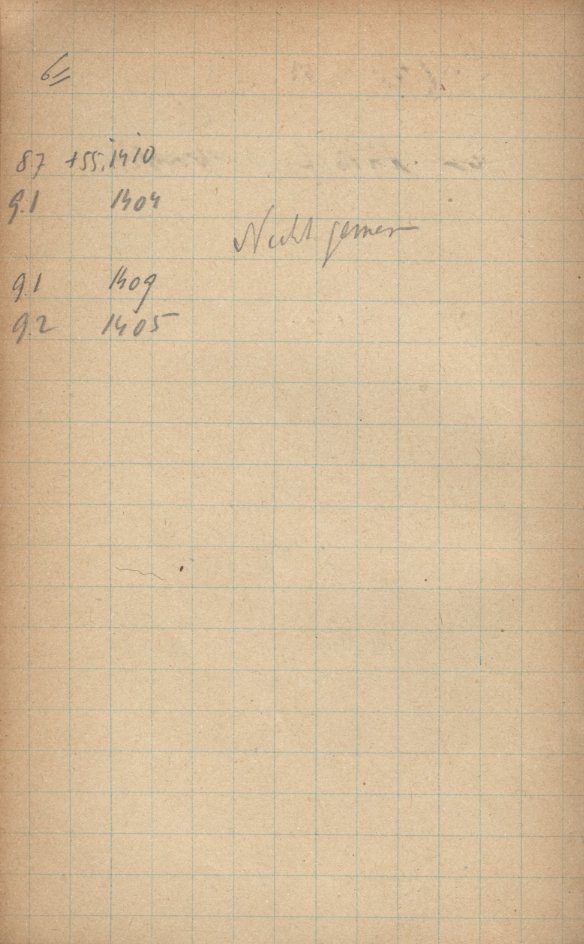 6
8.7 +55.1410
9.1 1404
Nicht
9.1 1409
9.2 1405